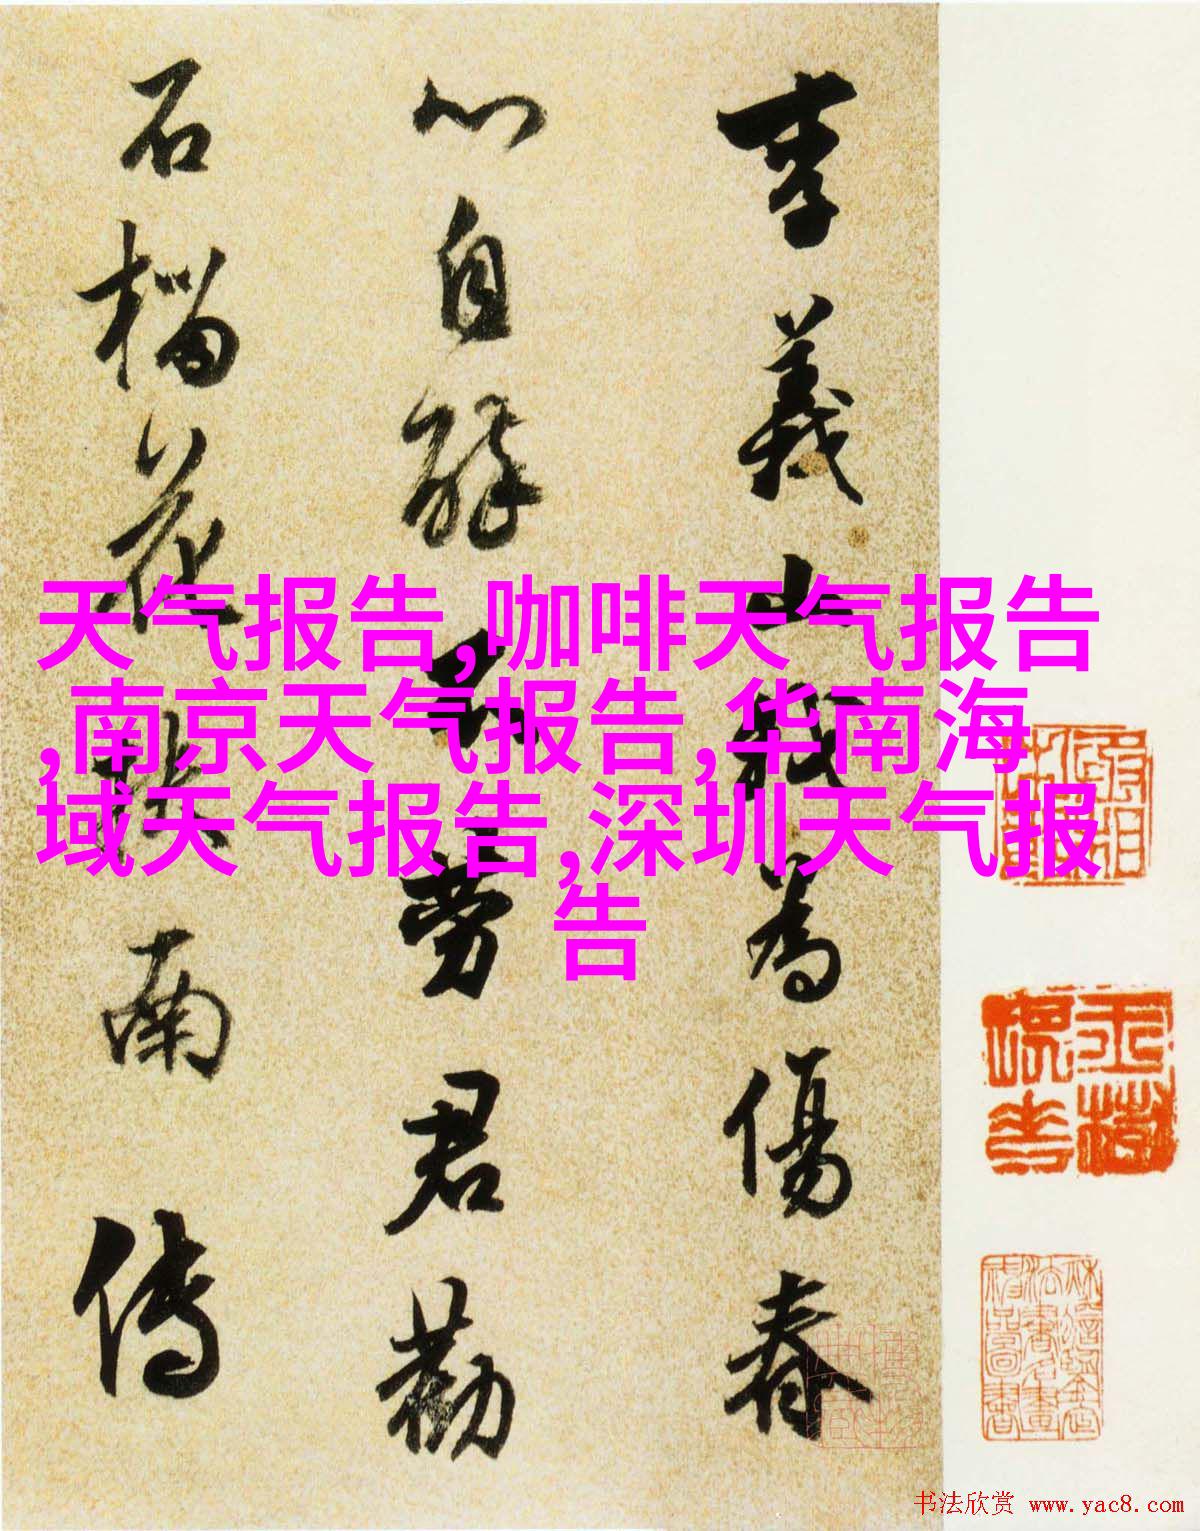 天气报告,咖啡天气报告
,南京天气报告,华南海
域天气报告,深圳天气报
告
李義山我為傷春
心自醉不勞君勸
石榴花 南傳
书法欣赏 www.yac8.com